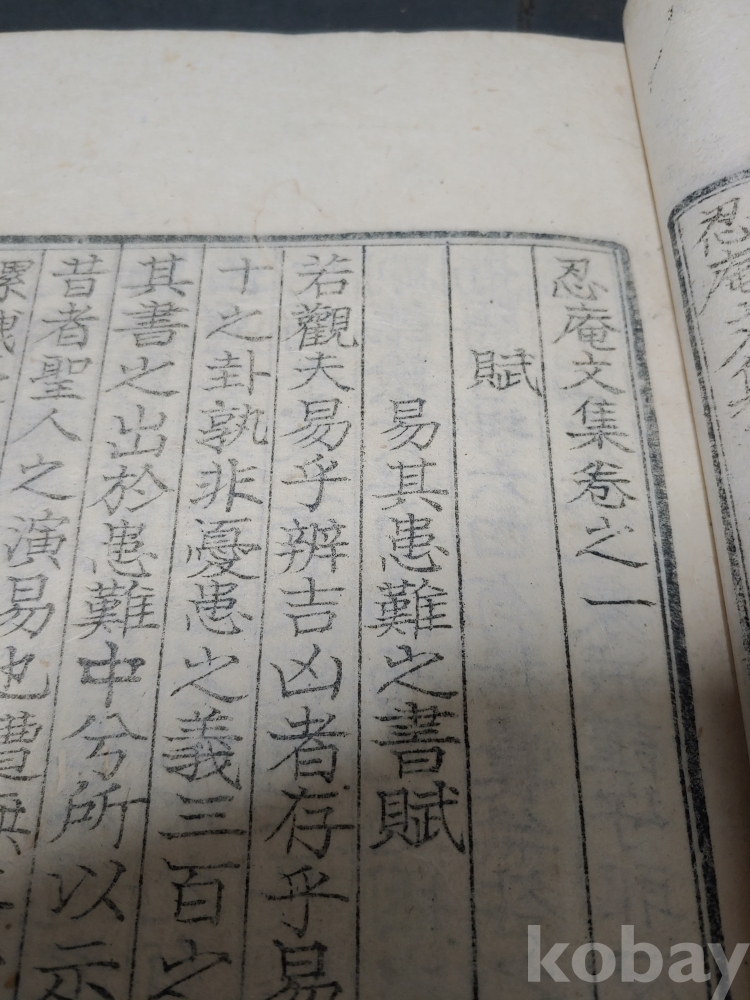 忍庵文集卷之一
賦
易其患難之書賦
若觀夫易乎辨吉凶者存乎易
十之卦孰非憂患之義三百之
其書之出於患難中兮所以示
昔者聖人之演易也遭
忍庵文集
kobay